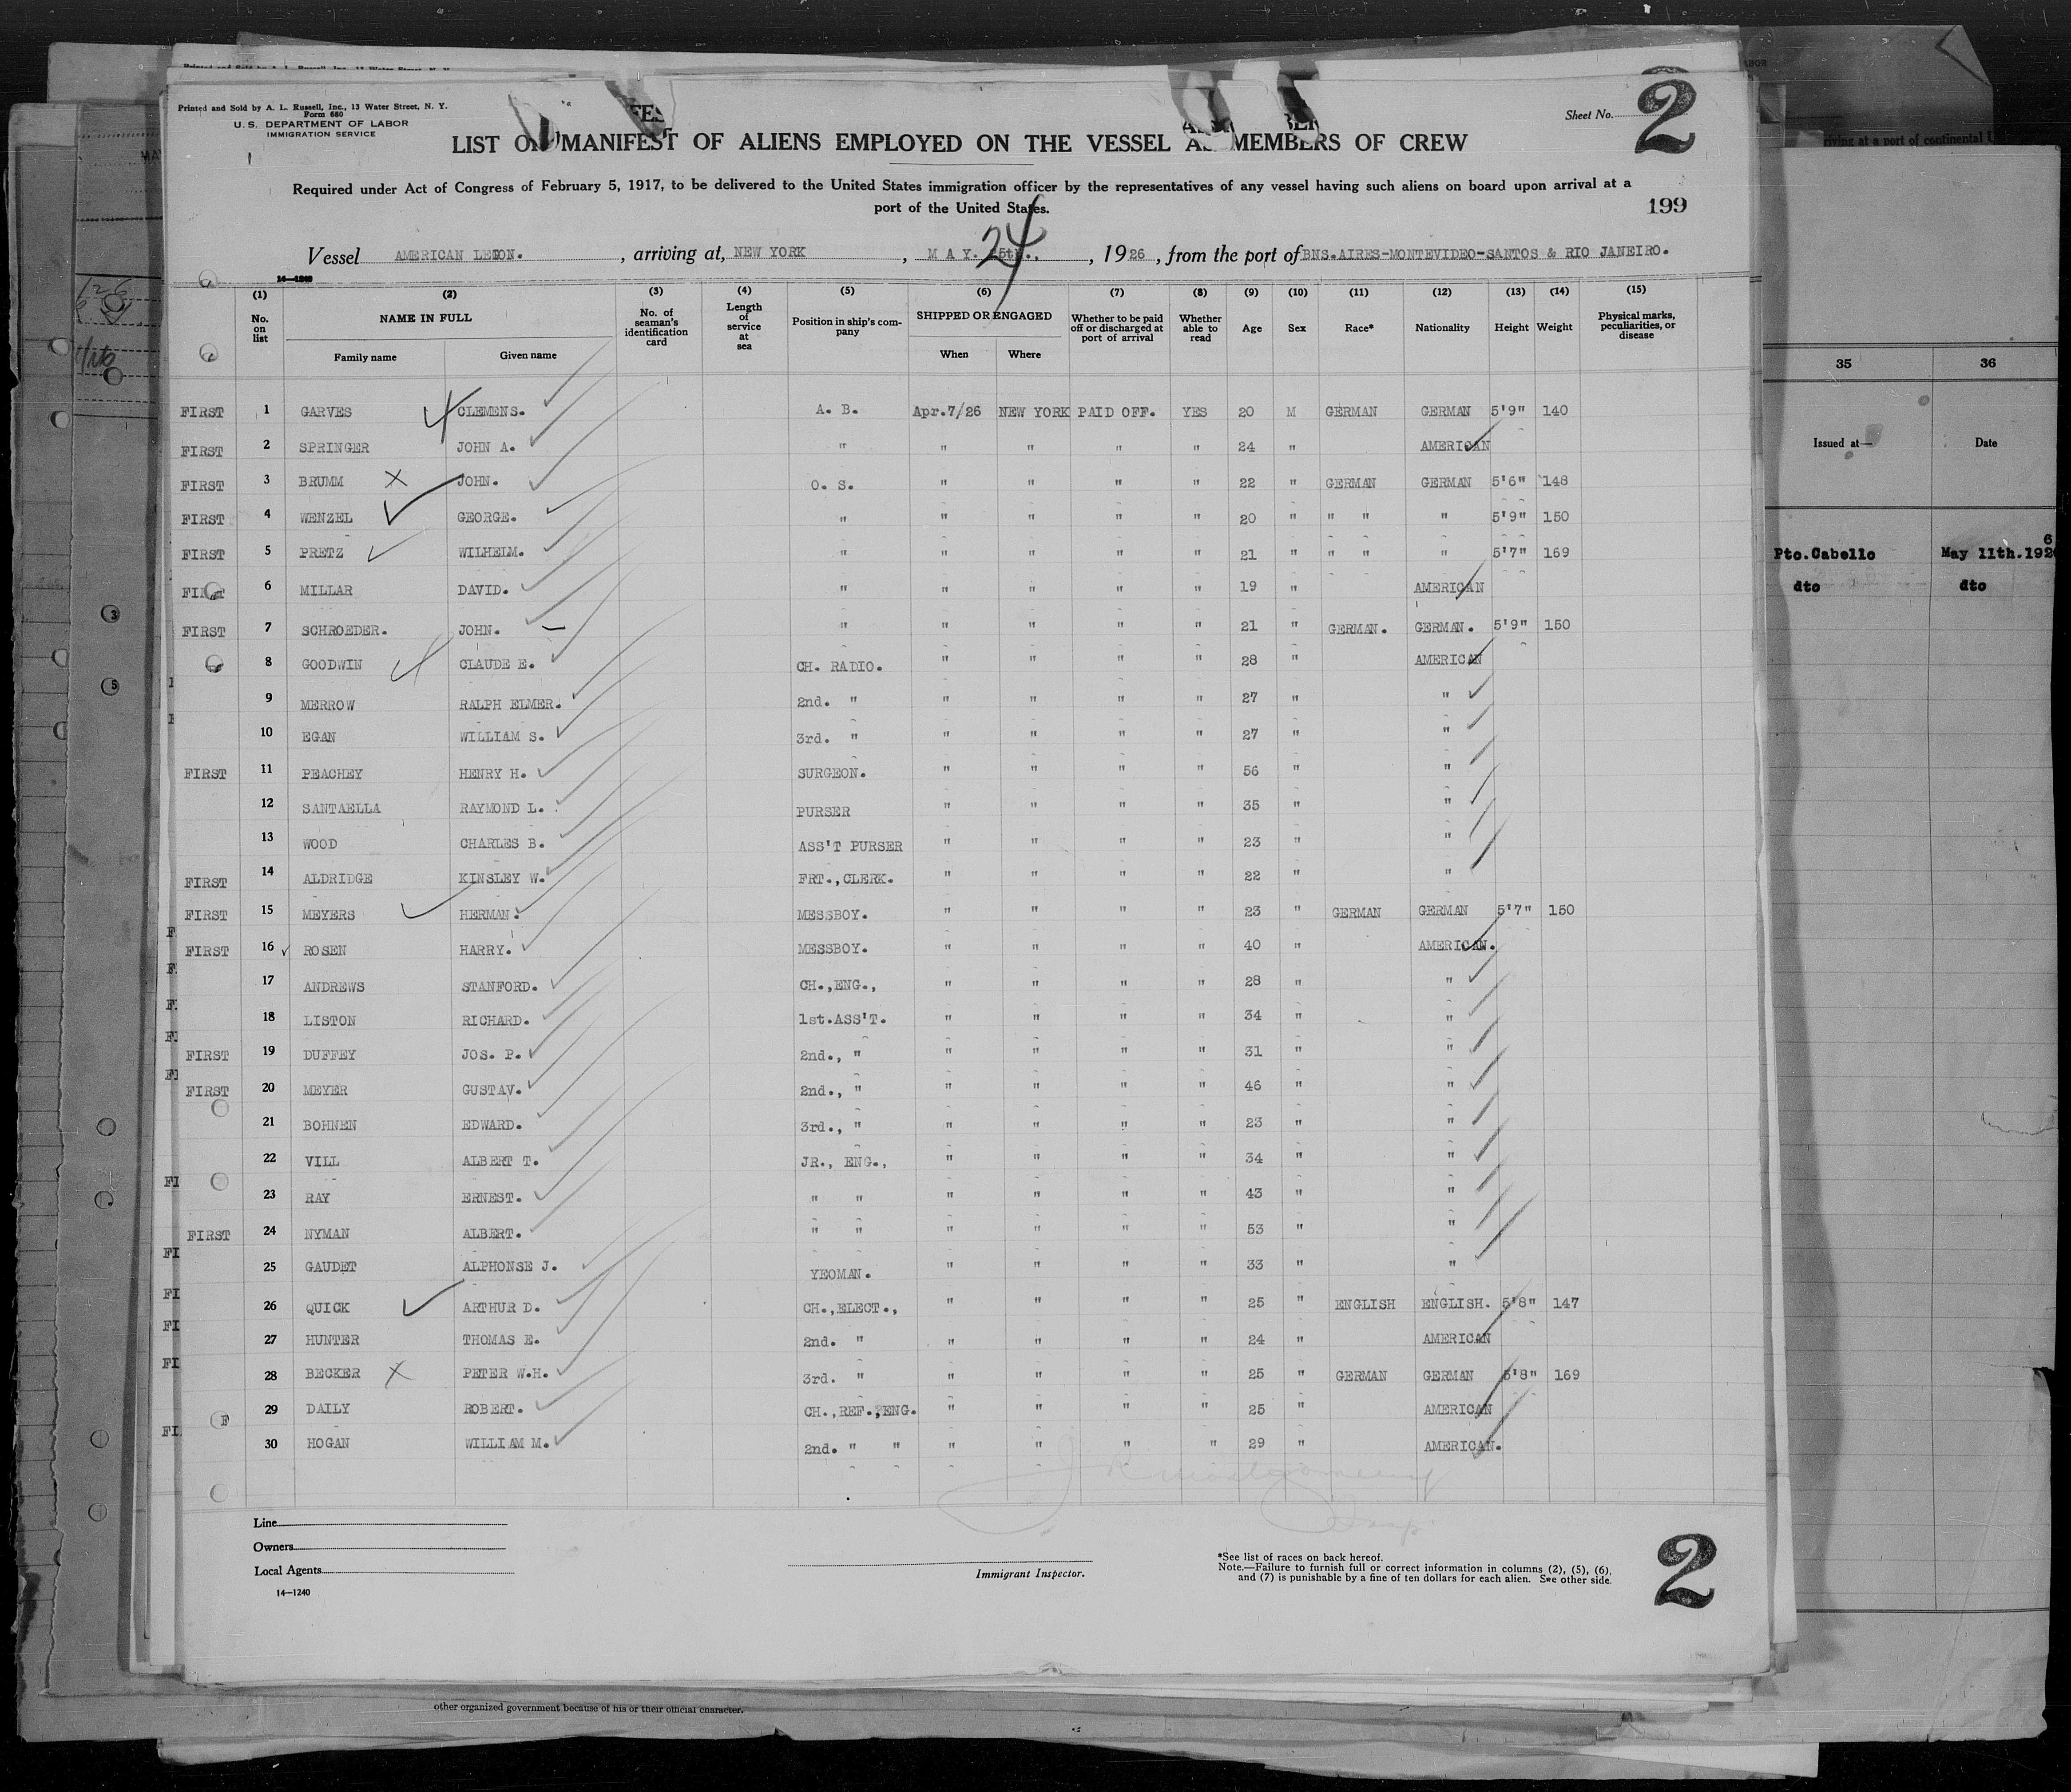 Printed and Sold by A. L. Russell, Inc., 13 Water Street, N. Y.
Form 680
U. S. DEPARTMENT OF LABOR
IMMIGRATION SERVICE
Sheet No. 2
LIST OR MANIFEST OF ALIENS EMPLOYED ON THE VESSEL AS MEMBERS OF CREW
Required under Act of Congress of February 5, 1917, to be delivered to the United States immigration officer by the representatives of any vessel having such aliens on board upon arrival at a
port of the United States.
199
Vessel AMERICAN LEGION. , arriving at, NEW YORK , MAY. 25th., 24 , 1926 , from the port of BNS.AIRES-MONTEVIDEO-SANTOS & RIO JANEIRO.
14—1240
(1) (2) (3) (4) (5) (6) (7) (8) (9) (10) (11) (12) (13) (14) (15)
No. on list NAME IN FULL No. of seaman's identification card Length of service at sea Position in ship's company SHIPPED OR ENGAGED Whether to be paid off or discharged at port of arrival Whether able to read Age Sex Race* Nationality Height Weight Physical marks, peculiarities, or disease
Family name Given name When Where
FIRST 1 GARVES CLEMENS. A. B. Apr.7/26 NEW YORK PAID OFF. YES 20 M GERMAN GERMAN 5'9" 140
FIRST 2 SPRINGER JOHN A. " " " " " 24 " AMERICAN
FIRST 3 BRUMM X JOHN. O. S. " " " " 22 " GERMAN GERMAN 5'6" 148
FIRST 4 WENZEL GEORGE. " " " " " 20 " " " " 5'9" 150
FIRST 5 PRETZ WILHELM. " " " " " 21 " " " " 5'7" 169
FIRST 6 MILLAR DAVID. " " " " " 19 " AMERICAN
FIRST 7 SCHROEDER. JOHN. " " " " " 21 " GERMAN. GERMAN. 5'9" 150
8 GOODWIN CLAUDE E. CH. RADIO. " " " " 28 " AMERICAN
9 MERROW RALPH ELMER. 2nd. " " " " " 27 " "
10 EGAN WILLIAM S. 3rd. " " " " " 27 " "
FIRST 11 PEACHEY HENRY H. SURGEON. " " " " 56 " "
12 SANTAELLA RAYMOND L. PURSER " " " " 35 " "
13 WOOD CHARLES B. ASS'T PURSER " " " " 23 " "
FIRST 14 ALDRIDGE KINSLEY W. FRT.,CLERK. " " " " 22 " "
FIRST 15 MEYERS HERMAN. MESSBOY. " " " " 23 " GERMAN GERMAN 5'7" 150
FIRST 16 ROSEN HARRY. MESSBOY. " " " " 40 " AMERICAN.
17 ANDREWS STANFORD. CH.,ENG., " " " " 28 " "
18 LISTON RICHARD. 1st.ASS'T. " " " " 34 " "
FIRST 19 DUFFEY JOS. P. 2nd., " " " " " 31 " "
FIRST 20 MEYER GUSTAV. 2nd., " " " " " 46 " "
21 BOHNEN EDWARD. 3rd., " " " " " 23 " "
22 VILL ALBERT T. JR., ENG., " " " " 34 " "
23 RAY ERNEST. " " " " " " 43 " "
FIRST 24 NYMAN ALBERT. " " " " " " 53 " "
25 GAUDET ALPHONSE J. YEOMAN. " " " " 33 " "
26 QUICK ARTHUR D. CH.,ELECT., " " " " 25 " ENGLISH ENGLISH. 5'8" 147
27 HUNTER THOMAS E. 2nd. " " " " " 24 " AMERICAN
28 BECKER X PETER W.H. 3rd. " " " " " 25 " GERMAN GERMAN 5'8" 169
29 DAILY ROBERT. CH.,REF.,ENG. " " " " 25 " AMERICAN
30 HOGAN WILLIAM M. 2nd. " " " " " " 29 " AMERICAN.
Line
Owners
Local Agents
14—1240
Immigrant Inspector.
*See list of races on back hereof.
Note.—Failure to furnish full or correct information in columns (2), (5), (6),
and (7) is punishable by a fine of ten dollars for each alien. See other side.
2
other organized government because of his or their official character.
riving at a port of continental U
35 36
Issued at— Date
Pto.Cabello May 11th.1926
dto dto